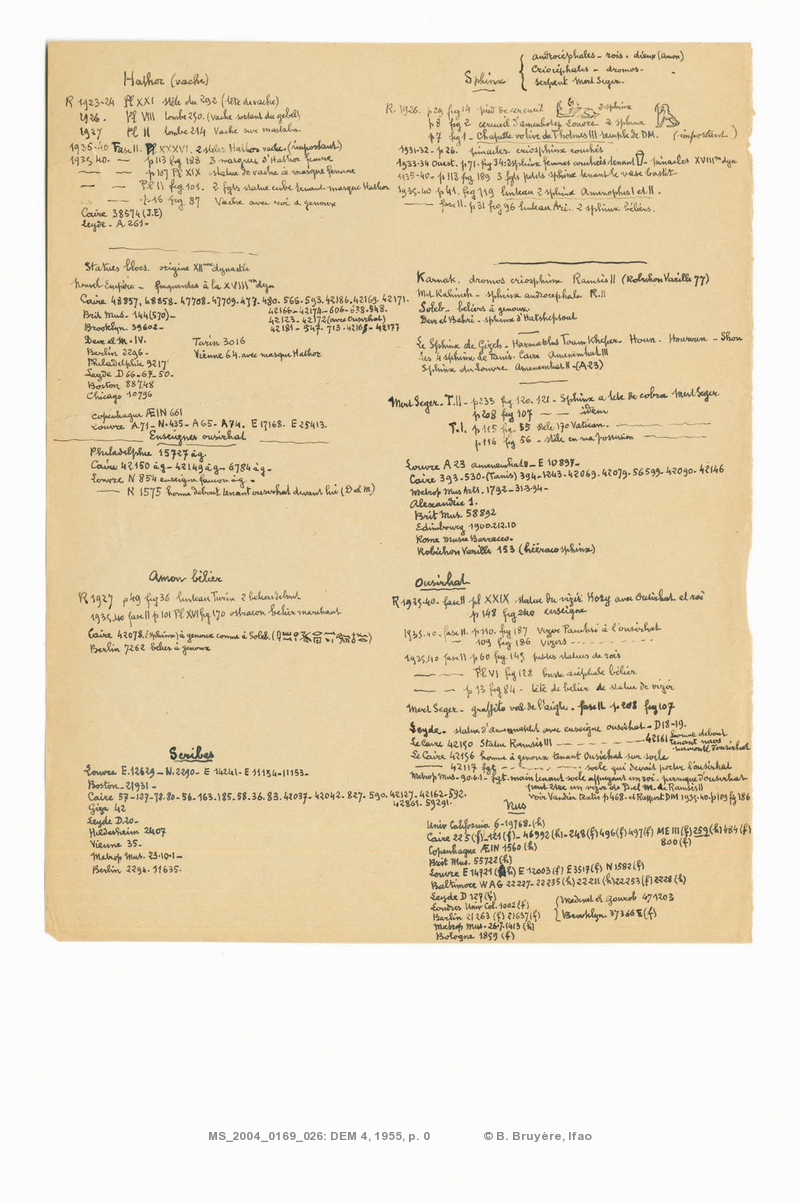 Hathor (vache)
R 1923-24 Pl XXI stèle du 292 (tête de vache)
1926. Pl VIII tombe 250. (vache sortant du gebel)
1927 Pl II tombe 214 Vache sur mastaba.
1935-40 Fasc II. Pl XXXVI. 2 stèles Hathor vache. (important)
1935-40. — p 113 fig 188 3 masques d'Hathor femme
— — p 107 Pl XIX statue de vache à masque femme
— — Pl II fig. 101. 2 fgts statue cube tenant masque Hathor
p 16 fig. 87 Vache avec roi à genoux
Caire 38574 (J.E)
Leyde. A. 261-
Statues blocs. origine XIIème dynastie
Nouvel Empire - fréquentes à la XVIIIème dyn
Caire 48857, 48858-47708-47709. 477. 480. 566. 593. 42186. 42169. 42171.
Brit Mus. 144(570)- 42166-42174- 606-638-548.
Brooklyn. 39602- 42123- 42172 (avec Ousirhat)
42181- 547- 713- 42168- 42177
Deir el M. IV. Turin 3016
Berlin 2296. Vienne 64. avec masque Hathor
Philadelphie 9217
Leyde D 66-67-50.
Boston 88748
Chicago 10796
Copenhague ÆIN 661
Louvre A71- N.435- A65- A74. E 17168. E 25413.
Enseignes ousirhat
Philadelphie 15727 à g.
Caire 42150 à g- 42149 à g- 6784 à g-
Louvre N 854 enseigne faucon à g-
— R 1575 homme debout tenant ousirhat devant lui (D el M)
Amon bélier
R 1927 p 49 fig 36 linteau Turin 2 béliers debout
1935-40 fasc II p 101 Pl XVI fig 170 ostracon bélier marchant
Caire 42078. (sphinx) à genoux comme à Soleb.
Berlin 7262 bélier à genoux
Scribes
Louvre E. 12629- N. 2290- E 14241- E 11154-11153-
Boston. 21931-
Caire 57-127-78.80-56.163.185.58.36.83. 42037- 42042. 827- 590. 42127- 42162- 592.
42861. 59291.
Giza 42
Leyde D. 20-
Hildesheim 2407
Vienne 35.
Metrop Mus. 23.10.1-
Berlin 2294. 11635.
Sphinx
androcéphales - rois. dieux (amon)
Criocéphales - dromos.
serpent Mert Seger.
R. 1926. p 29 fig 14 pied de cercueil 2 sphinx
p 8 fig 2 cercueil d'amenhotep Louvre 2 sphinx
p 7 fig 1- Chapelle votive de Thotmes III temple de DM. (important)
1931-32- p 26. pinacles criosphinx couchés
1933-34 Ouest. p 71. fig 34: 2 sphinx femmes couchées tenant pinacles XVIIIème dyn
1935-40- p 113 fig 189 3 fgts petits sphinx tenant le vase bastit-
1935-40 p 41. fig 119 linteau 2 sphinx Amenophis I et II.
— fasc II. p 31 fig 96 linteau Ari. 2 sphinx béliers.
Karnak. dromos criosphinx Ramsès II (Robichon Varille 77)
Mit Rahineh - sphinx androcephale R. II
Soleb- béliers à genoux
Deir el Bahri - sphinx d'Hatshepsout
Le Sphinx de Gizeh - Harmakhis Toum Kheper. Houn. Houroun - Shou
les 4 sphinx de Tanis. Caire Amenemhat III
Sphinx du Louvre Amenemhat II - (A 23)
Mert Seger. T. II - p 233 fig 120. 121- Sphinx à tête de cobra Mert Seger
p 208 fig 107 — — idem
T. I. p 115 fig. 55 stèle 170 Vatican.
p 116 fig 56 - stèle en ma possession
Louvre A 23 amenemhat - E 10897-
Caire 393-530-(Tanis) 394-1243-42069-42079-56599-42090-42146
Metrop Mus Arts. 1792-31.3.94-
Alexandrie 1.
Brit Mus. 58892
Edimbourg 1900.212.10
Rome musée Barracco.
Robichon Varille 153 (hiéracosphinx)
Ousirhat
R 1935-40- fasc II pl XXIX statue du vizir Hory avec Ousirhat et roi
p 148 fig 240 enseigne
1935-40- fasc II- p 110. fig 187 Vizir Panhsi à l'ousirhat
109 fig 186 Vizirs
1935/40 fasc II p 60 fig 145 petites statues de rois
— Pl VI fig 128 buste acéphale bélier
— p 13 fig 84- tête de bélier de statue de vizir
Mert Seger- graffito val de l'aigle. fasc II p 208 fig 107
Leyde- statue d'amenemhat avec enseigne ousirhat- D 18-19.
Le Caire 42150 Statue Ramsès III — 42161 homme debout tenant naos surmonté d'ousirhat
Le Caire 42156 homme à genoux tenant Ousirhat sur socle
— 42117 fgt — socle qui devait porter l'ousirhat
Metrop Mus- 90.6.1- fgt. main tenant socle un roi. perruque d'ousirhat
peut être un vizir de D el M. de Ramsès II
voir Vandier textes p 468. et Rapport DM 1935-40. p 109 fg 186
Nus
Univ California 6-19768. (h)
Caire 225 (f)-121 (f)- 46992 (h)-248 (f) 496 (f) 497 (f) ME III (f) 259 (h) 484 (f)
800 (f)
Copenhague ÆIN 1560 (h)
Brit Mus. 55722 (h)
Louvre E 14721 (h) E 12003 (f) E 3517 (f) N 1582 (f)
Baltimore WAG 22227- 22235 (h) 22211 (h) 22253 (f) 2228 (h)
Leyde D 127 (f)
Londres Univ Col. 1002 (f) Medinet el Gourob 471203
Berlin 21263 (f) 21637 (f) Brooklyn 37366 E (f)
Metrop Mus- 26.7.1413 (h)
Bologne 1859 (f)
MS_2004_0169_026: DEM 4, 1955, p. 0 © B. Bruyère, Ifao